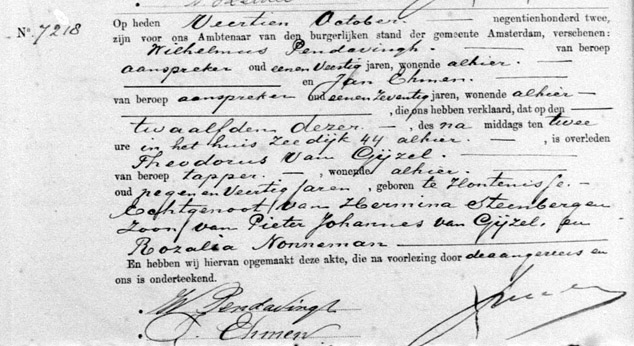 Op heden Veertien October. negentienhonderd twee,
Nº. 7218
zijn voor ons Ambtenaar van den burgerlijken stand der gemeente Amsterdam, verschenen:
Wilhelmus Pendavingh. van beroep
aanspreker oud eenenveertig jaren, wonende alhier.
en Jan Ehmen.
van beroep aanspreker oud eenenzeventig jaren, wonende alhier
, die ons hebben verklaard, dat op den
twaalfden dezer. , des na middags ten twee
ure in het huis Zeedijk 44 alhier. , is overleden
Theodorus van Gijzel.
van beroep tapper. , wonende alhier.
oud negenenveertig jaren , geboren te Hontenisse.
Echtgenoot van Hermina Steenbergen
Zoon van Pieter Johannes van Gijzel, en
Rozalia Nonneman
En hebben wij hiervan opgemaakt deze akte, die na voorlezing door de aangevers en
ons is onderteekend.
W Pendavingh
J. Ehmen